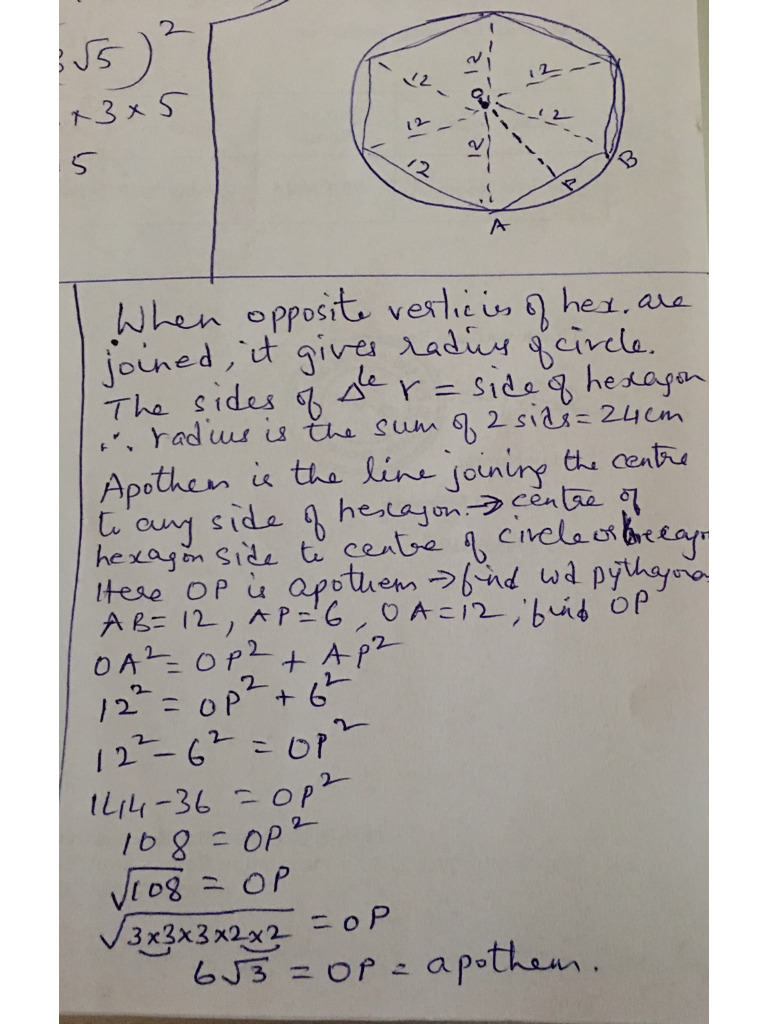 3√5)²
x 3 x 5
5
12
12
12
12
12
12
12
O
P
B
A
When opposite verticies of hex. are
joined, it gives radius of circle.
The sides of Δle r = side of hexagon
∴ radius is the sum of 2 sids = 24cm
Apothem is the line joining the centre
to any side of hexagon → centre of
hexagon side to centre of circle or hexagon
Here OP is apothem → find wd pythagoras
AB = 12, AP = 6, OA = 12, find OP
OA² = OP² + AP²
12² = OP² + 6²
12² - 6² = OP²
144 - 36 = OP²
108 = OP²
√108 = OP
√3x3x3x2x2 = OP
6√3 = OP = apothem.